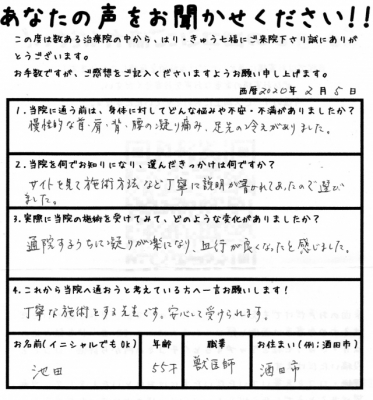 あなたの声をお聞かせください!!
この度は数ある治療院の中から、はり・きゅう七福にご来院下さり誠にありが
とうございます。
お手数ですが、ご感想をご記入くださいますようお願い申し上げます。
西暦2020年 2月 5日
1.当院に通う前は、身体に対してどんな悩みや不安・不満がありましたか?
慢性的な首・肩・背・腰の凝り痛み、足先の冷えがありました。
2.当院を何でお知りになり、選んだきっかけは何ですか?
サイトを見て施術方法など丁寧に説明が書かれてあったので選び
ました。
3.実際に当院の施術を受けてみて、どのような変化がありましたか?
通院するうちに凝りが楽になり、血行が良くなったと感じました。
4.これから当院へ通おうと考えている方へ一言お願いします!
丁寧な施術をする先生です。安心して受けられます。
お名前(イニシャルでもOK) 年齢 職業 お住まい(例;酒田市)
池田 55才 獣医師 酒田市